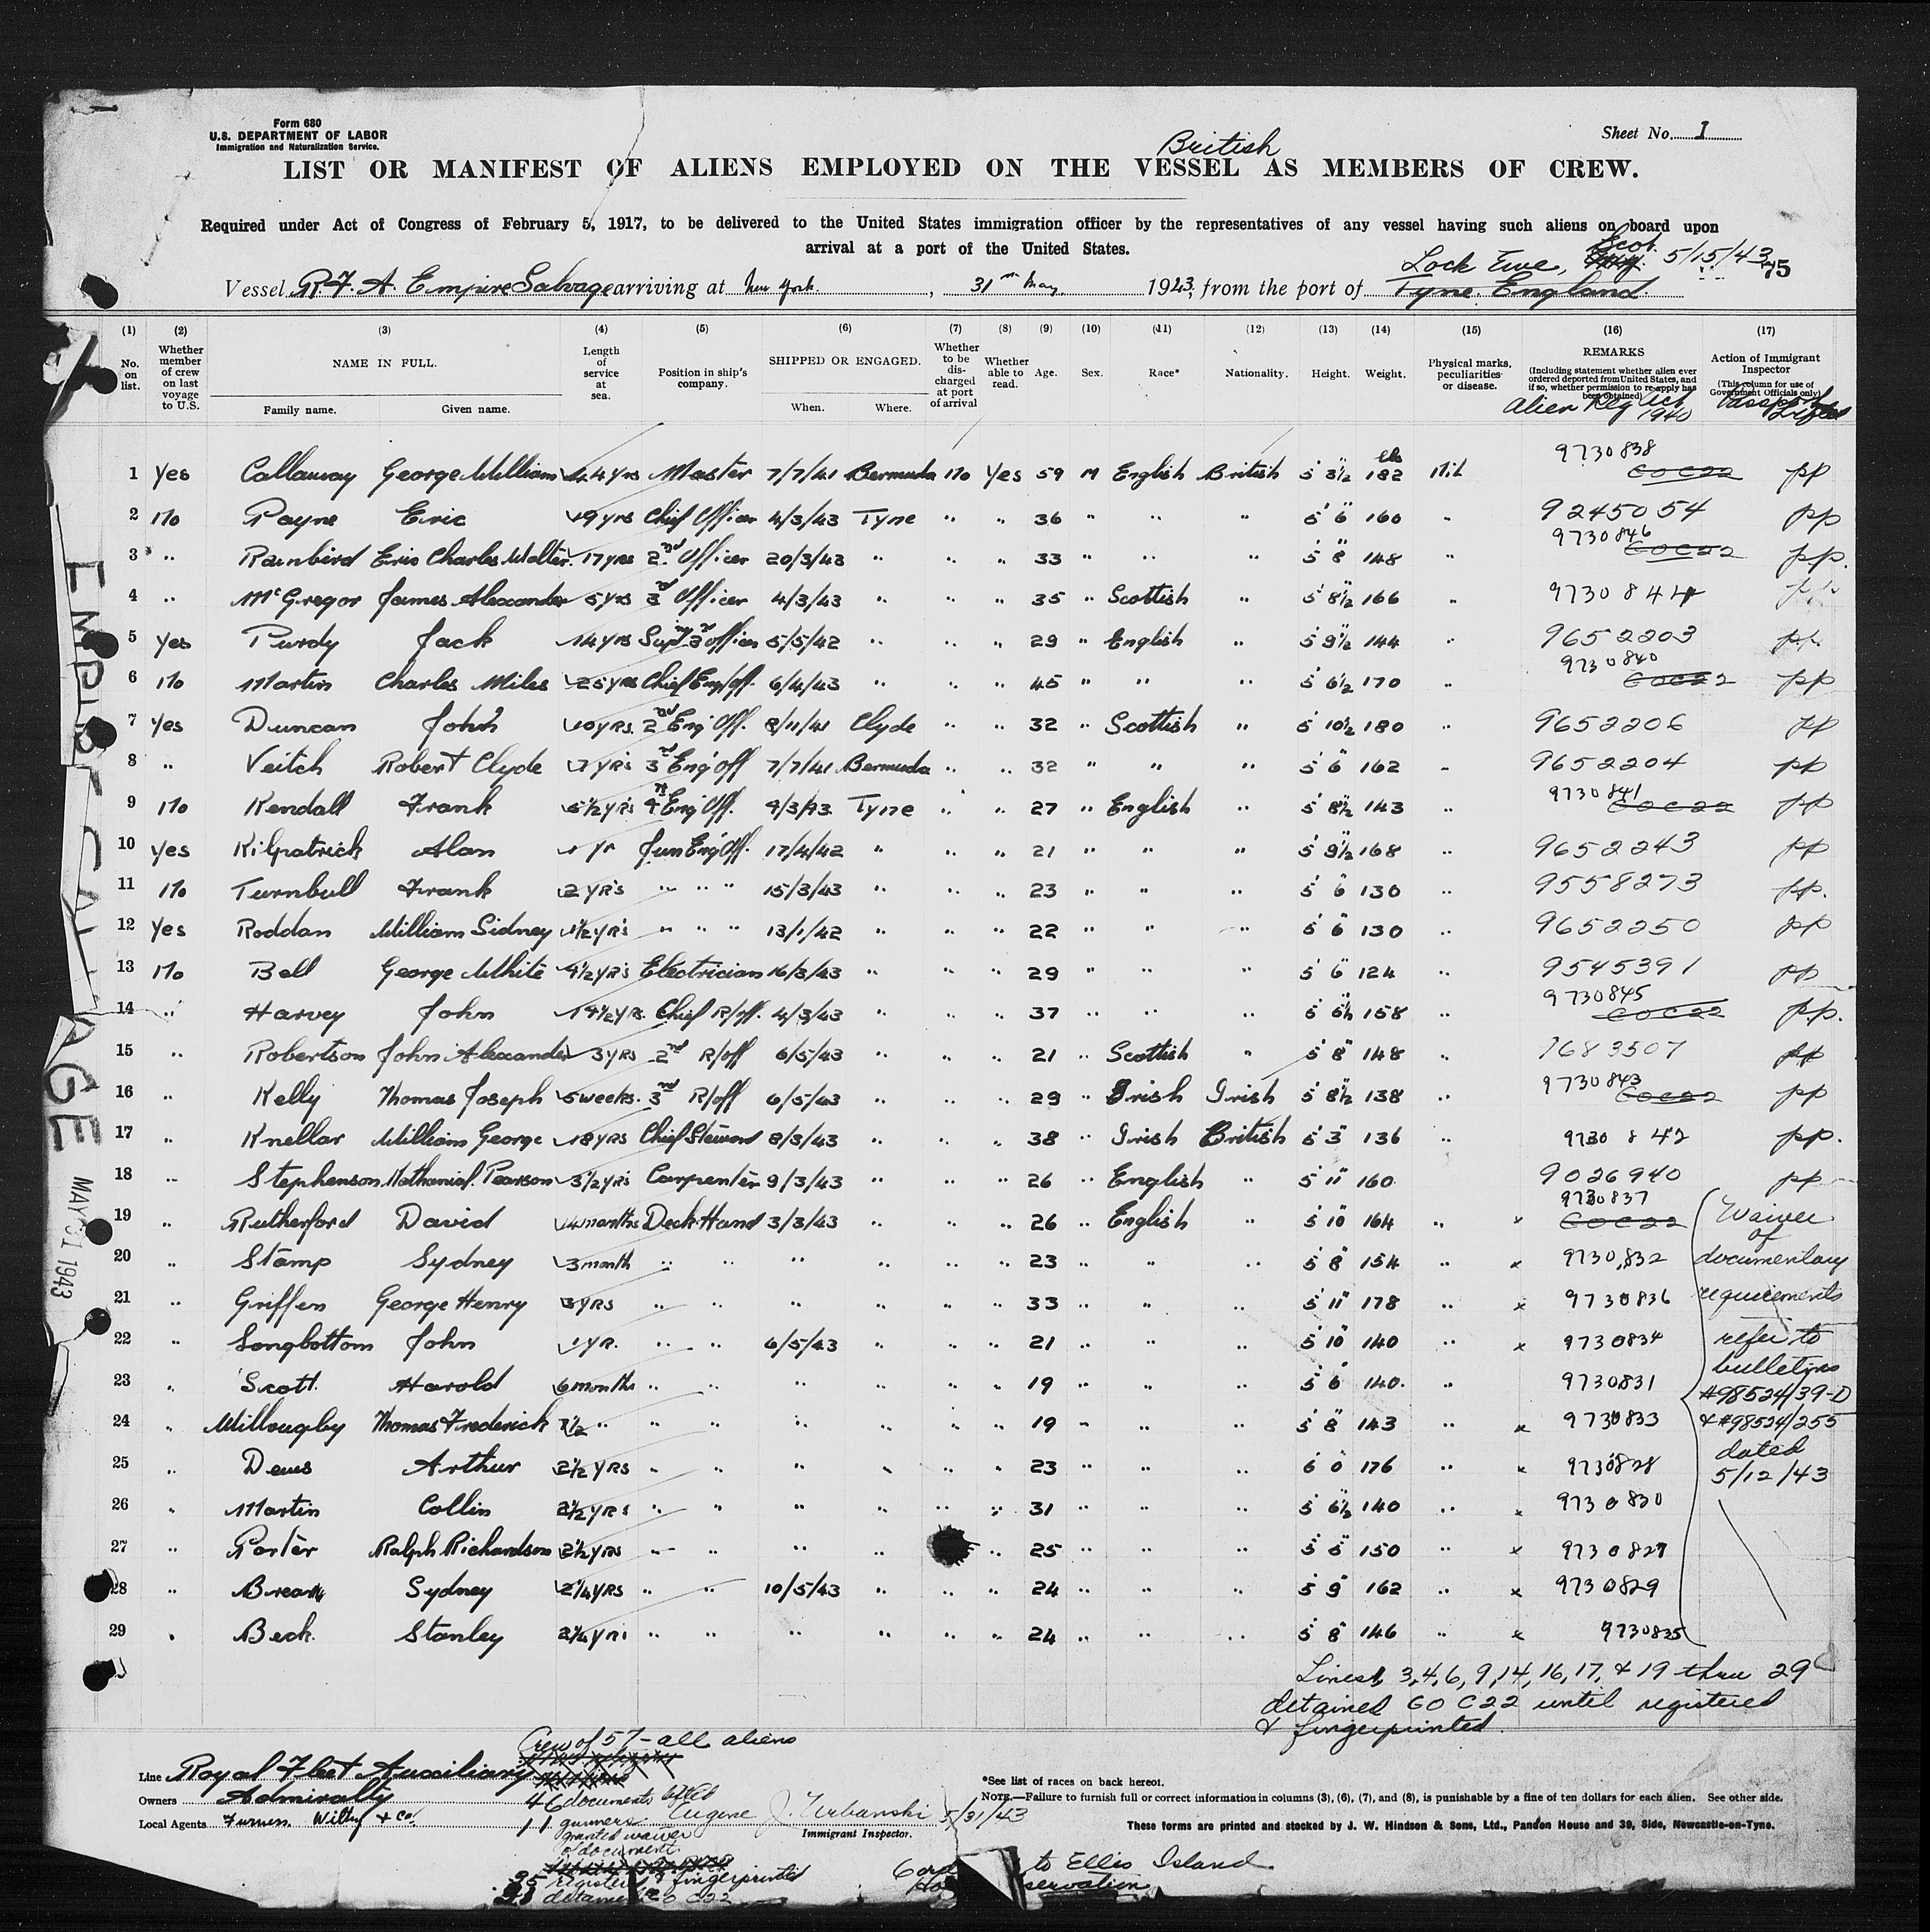 Form 680
U.S. DEPARTMENT OF LABOR
Immigration and Naturalization Service.
Sheet No. 1
British
LIST OR MANIFEST OF ALIENS EMPLOYED ON THE VESSEL AS MEMBERS OF CREW.
Required under Act of Congress of February 5, 1917, to be delivered to the United States immigration officer by the representatives of any vessel having such aliens on board upon
arrival at a port of the United States.
Lock Ewe, Scot. 5/15/43 75
Vessel R.F.A. Empire Salvage arriving at New York, 31st May 1943, from the port of Tyne. England.
(1) (2) (3) (4) (5) (6) (7) (8) (9) (10) (11) (12) (13) (14) (15) (16) (17)
No. on list. Whether member of crew on last voyage to U.S. NAME IN FULL. Family name. Given name. Length of service at sea. Position in ship's company. SHIPPED OR ENGAGED. When. Where. Whether to be discharged at port of arrival Whether able to read. Age. Sex. Race* Nationality. Height. Weight. Physical marks, peculiarities or disease. REMARKS (Including statement whether alien ever ordered deported from United States, and if so, whether permission to re-apply has been obtained) Action of Immigrant Inspector (This column for use of Government Officials only)
Alien Reg Act 1940
1 Yes Callaway George William 44 yrs Master 7/7/41 Bermuda No Yes 59 M English British 5' 3½" 182 lbs Nil 9730838 GOC22 pp
2 No Payne Eric 19 yrs Chief Officer 4/3/43 Tyne " " 36 " " " 5' 6" 160 " 9245054 pp
3 " Rainbird Eric Charles Walter 17 yrs 2nd Officer 20/3/43 " " " 33 " " " 5' 8" 148 " 9730846 GOC22 pp.
4 " McGregor James Alexander 5 yrs 3rd Officer 4/3/43 " " " 35 " Scottish " 5' 8½" 166 " 9730844 pp
5 Yes Purdy Jack 14 yrs Supny 3rd officer 5/5/42 " " " 29 " English " 5' 9½" 144 " 9652203 pp.
6 No Martin Charles Miles 25 yrs Chief Eng/off. 6/4/43 " " " 45 " " " 5' 6½" 170 " 9730840 GOC22 pp
7 Yes Duncan John 10 yrs. 2nd Eng Off. 8/11/41 Clyde " " 32 " Scottish " 5' 10½" 180 " 9652206 pp
8 " Veitch Robert Clyde 7 yrs 3rd Eng Off 7/7/41 Bermuda " " 32 " " " 5' 6" 162 " 9652204 pp
9 No Kendall Frank 5½ yrs 4th Eng Off. 4/3/43 Tyne " " 27 " English " 5' 8½" 143 " 9730841 GOC22 pp
10 Yes Kilpatrick Alan 1 yr Jun Eng Off. 17/4/42 " " " 21 " " " 5' 9½" 168 " 9652243 pp
11 No Turnbull Frank 2 yrs " " " 15/3/43 " " " 23 " " " 5' 6" 130 " 9558273 pp.
12 Yes Roddan William Sidney 1½ yrs " " " 13/1/42 " " " 22 " " " 5' 6" 130 " 9652250 pp
13 No Bell George White 4½ yrs Electrician 16/3/43 " " " 29 " " " 5' 6" 124 " 9545391 pp
14 " Harvey John 19½ yrs. Chief R/off. 4/3/43 " " " 37 " " " 5' 5½" 158 " 9730845 GOC22 pp.
15 " Robertson John Alexander 3 yrs 2nd R/off 6/5/43 " " " 21 " Scottish " 5' 8" 148 " 9683507 pp
16 " Kelly Thomas Joseph 5 weeks. 3rd R/off 6/5/43 " " " 29 " Irish Irish 5' 8½" 138 " 9730843 GOC22 pp
17 " Knellar William George 18 yrs Chief Steward 8/3/43 " " " 38 " Irish British 5' 3" 136 " 9730842 pp.
18 " Stephenson Nathanial Pearson 3½ yrs Carpenter 9/3/43 " " " 26 " English " 5' 11" 160 9026940 pp
19 " Rutherford David 4 months Deck Hand 3/3/43 " " " 26 " English 5' 10" 164 " x 9730837 GOC22
20 " Stamp Sydney 3 month " " " " " " 23 " " " 5' 8" 154 " x 9730832
21 " Griffen George Henry 3 yrs " " " " " " 33 " " " 5' 11" 178 " x 9730836
22 " Longbottom John 1 yr. " " 6/5/43 " " " 21 " " " 5' 10" 140 " x 9730834
23 " Scott Harold 6 months " " " " " " 19 " " " 5' 6" 140. " 9730831
24 " Willougby Thomas Frederick " " " " " " " 19 " " " 5' 8" 143 " x 9730833
25 " Dews Arthur 2½ yrs " " " " " " 23 " " " 6' 0" 176 " x 9730828
26 " Martin Collin 2½ yrs " " " " " " 31 " " " 5' 6½" 140 " x 9730830
27 " Porter Ralph Richardson 2½ yrs " " " " " 25 " " " 5' 5" 150 " x 9730827
28 " Sydney 2¼ yrs " " 10/5/43 " " " 24 " " " 5' 9" 162 " x 9730829
29 " Beck. Stanley 2¼ yrs " " " " " " 24 " " " 5' 8" 146 " x 9730835
Waiver
of
documentary
requirements
refer to
bulletins
#98524/39-D
& #98524/255
dated
5/12/43
Lines 1, 3, 4, 6, 9, 14, 16, 17, & 19 thru 29
detained GO C22 until registered
& fingerprinted.
EMPIRE SALVAGE
MAY 31 1943
Crew of 57 - all aliens
Line Royal Fleet Auxiliary
Owners Admiralty
Local Agents Furness Withy & Co.
46 documents
11 gunners
granted waiver
of document
35 registered & fingerprinted
detained GO C22
Eugene J. Urbanski 5/31/43
Immigrant Inspector.
to Ellis Island
*See list of races on back hereof.
NOTE.—Failure to furnish full or correct information in columns (3), (6), (7), and (8), is punishable by a fine of ten dollars for each alien. See other side.
These forms are printed and stocked by J. W. Hindson & Sons, Ltd., Pandon House and 39, Side, Newcastle-on-Tyne.